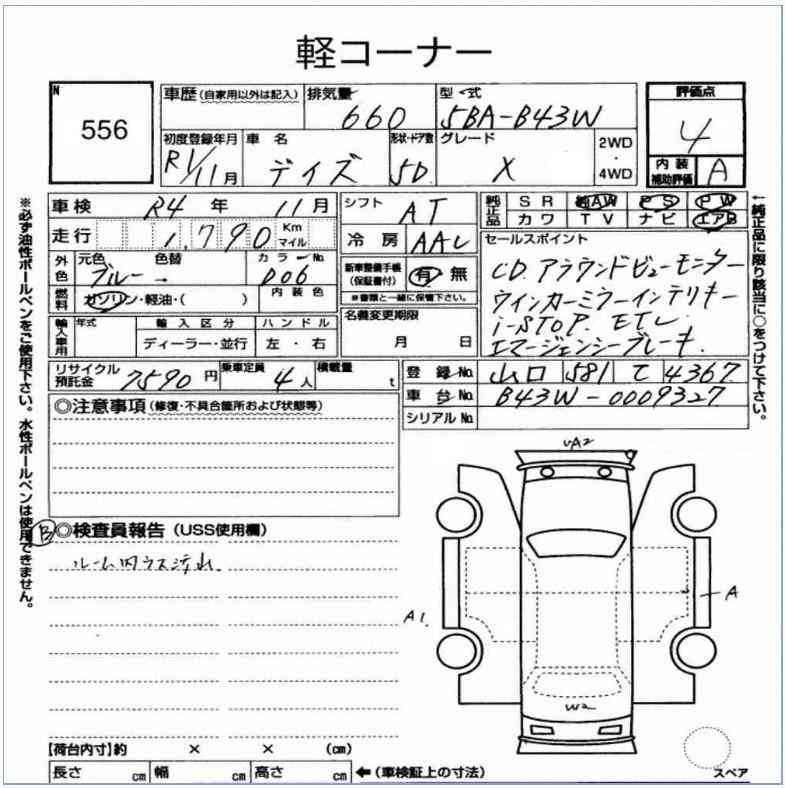 軽コーナー
N
556
車歴 (自家用以外は記入)
排気量 660
型 式 5BA-B43W
評価点 4
初度登録年月 R1/11月
車 名 デイズ
形状・ドア数 5D
グレード X
2WD・4WD
内装補助評価 A
車検 R4 年 11 月
シフト AT
純正品 SR 純AW PS PW
カワ TV ナビ エアB
走行 1,790 Km マイル
冷房 AAC
外色 元色 ブルー 色替 →
カラーNo. D06
燃料 ガソリン・軽油・( )
内装色
新車整備手帳(保証書付) 有 無
※書類と一緒に保管下さい。
セールスポイント
CD. アラウンドビューモニター
ウインカーミラーインテリキー
i-STOP. ETC
エマージェンシーブレーキ.
輸入車用 年式
輸入区分 ディーラー・並行
ハンドル 左・右
名義変更期限 月 日
リサイクル預託金 7590 円
乗車定員 4 人
積載量 t
登録No. 山口 581 て 4367
車台No. B43W-0009327
シリアルNo.
◎注意事項 (修復・不具合箇所および状態等)
B ◎検査員報告 (USS使用欄)
UA2
A
A1.
W2
【荷台内寸】約 × × (cm)
長さ cm 幅 cm 高さ cm ←(車検証上の寸法)
スペア
※必ず油性ボールペンをご使用下さい。水性ボールペンは使用できません。
←純正品に限り該当に○をつけて下さい。